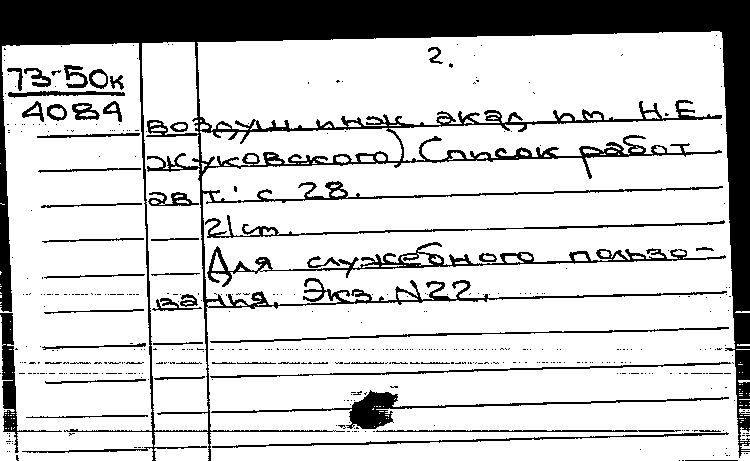 2.
73-50к
4084
воздуш. инж. акад. им. Н.Е.
Жуковского). Список работ
авт.: с. 28.
21 ст.
Для служебного пользо-
вания. Экз. N22.